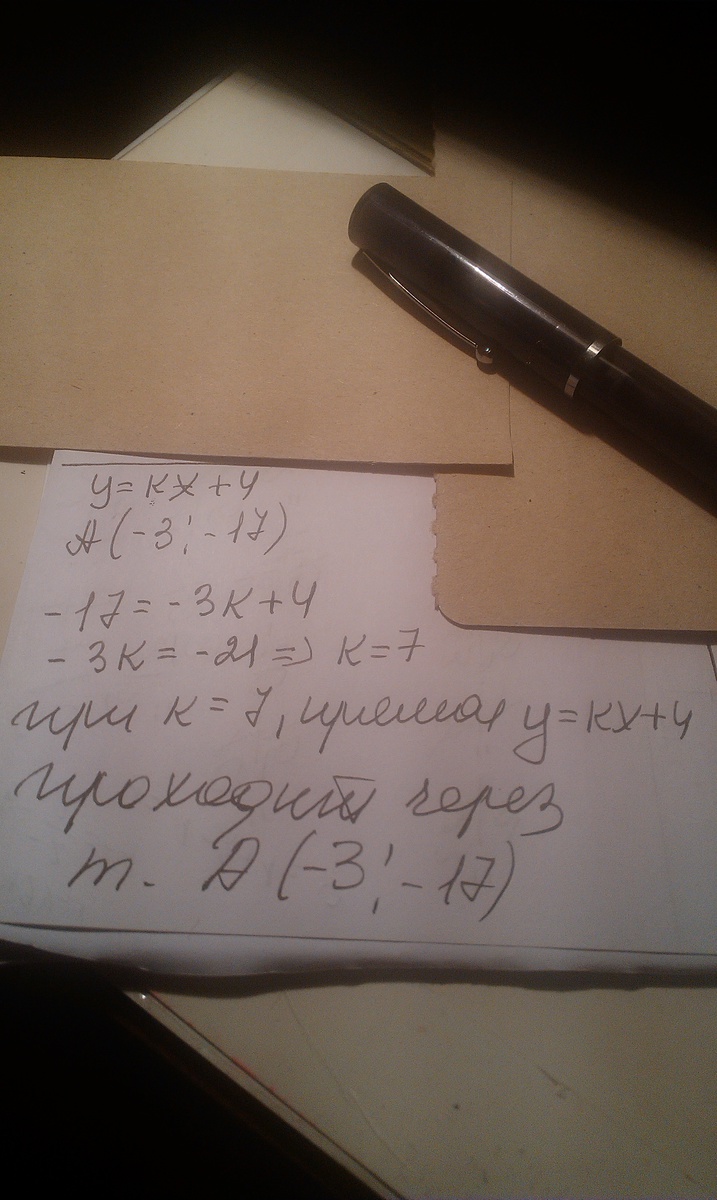 y=kx+4
A(-3;-17)
-17=-3k+4
-3k=-21=>k=7
при k=7, прямая y=kx+4
проходит через
т. A(-3;-17)